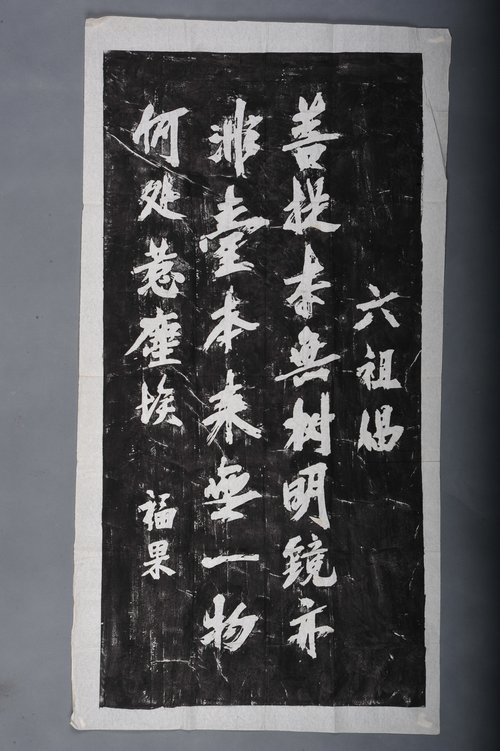 六祖偈
菩提本無树明鏡亦
非臺本来無一物
何处惹塵埃
福果